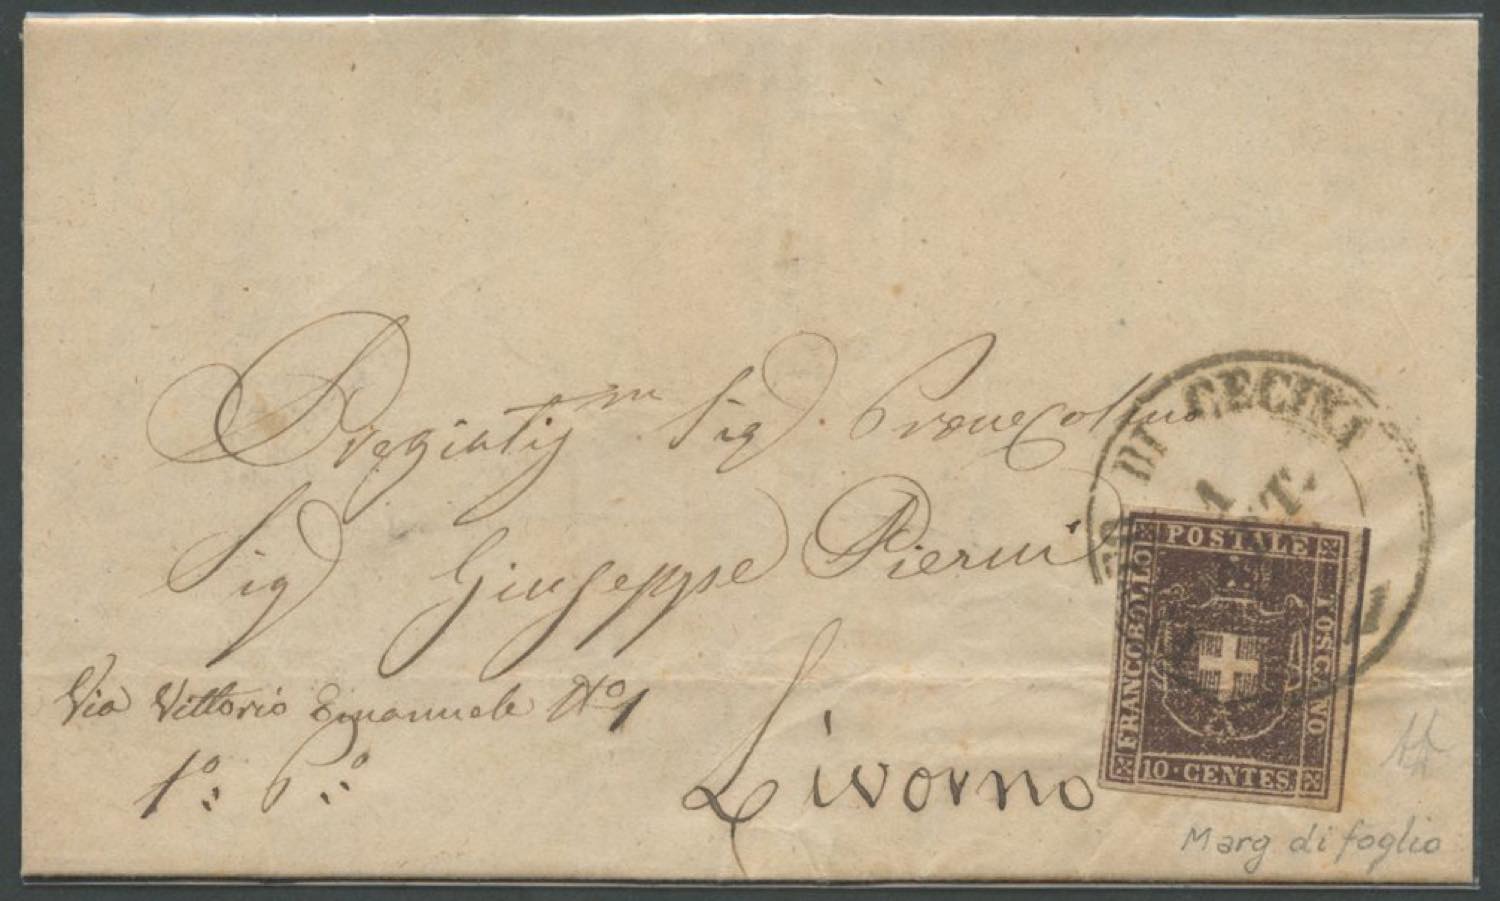 Pregiatis.mo Sig.
Sig Giuseppe Pierini
Via Vittorio Emanuele No 1
1o: Po:
Livorno
DI CECINA
1
POSTALE
FRANCOBOLLO
TOSCANO
10·CENTES.
Marg di foglio